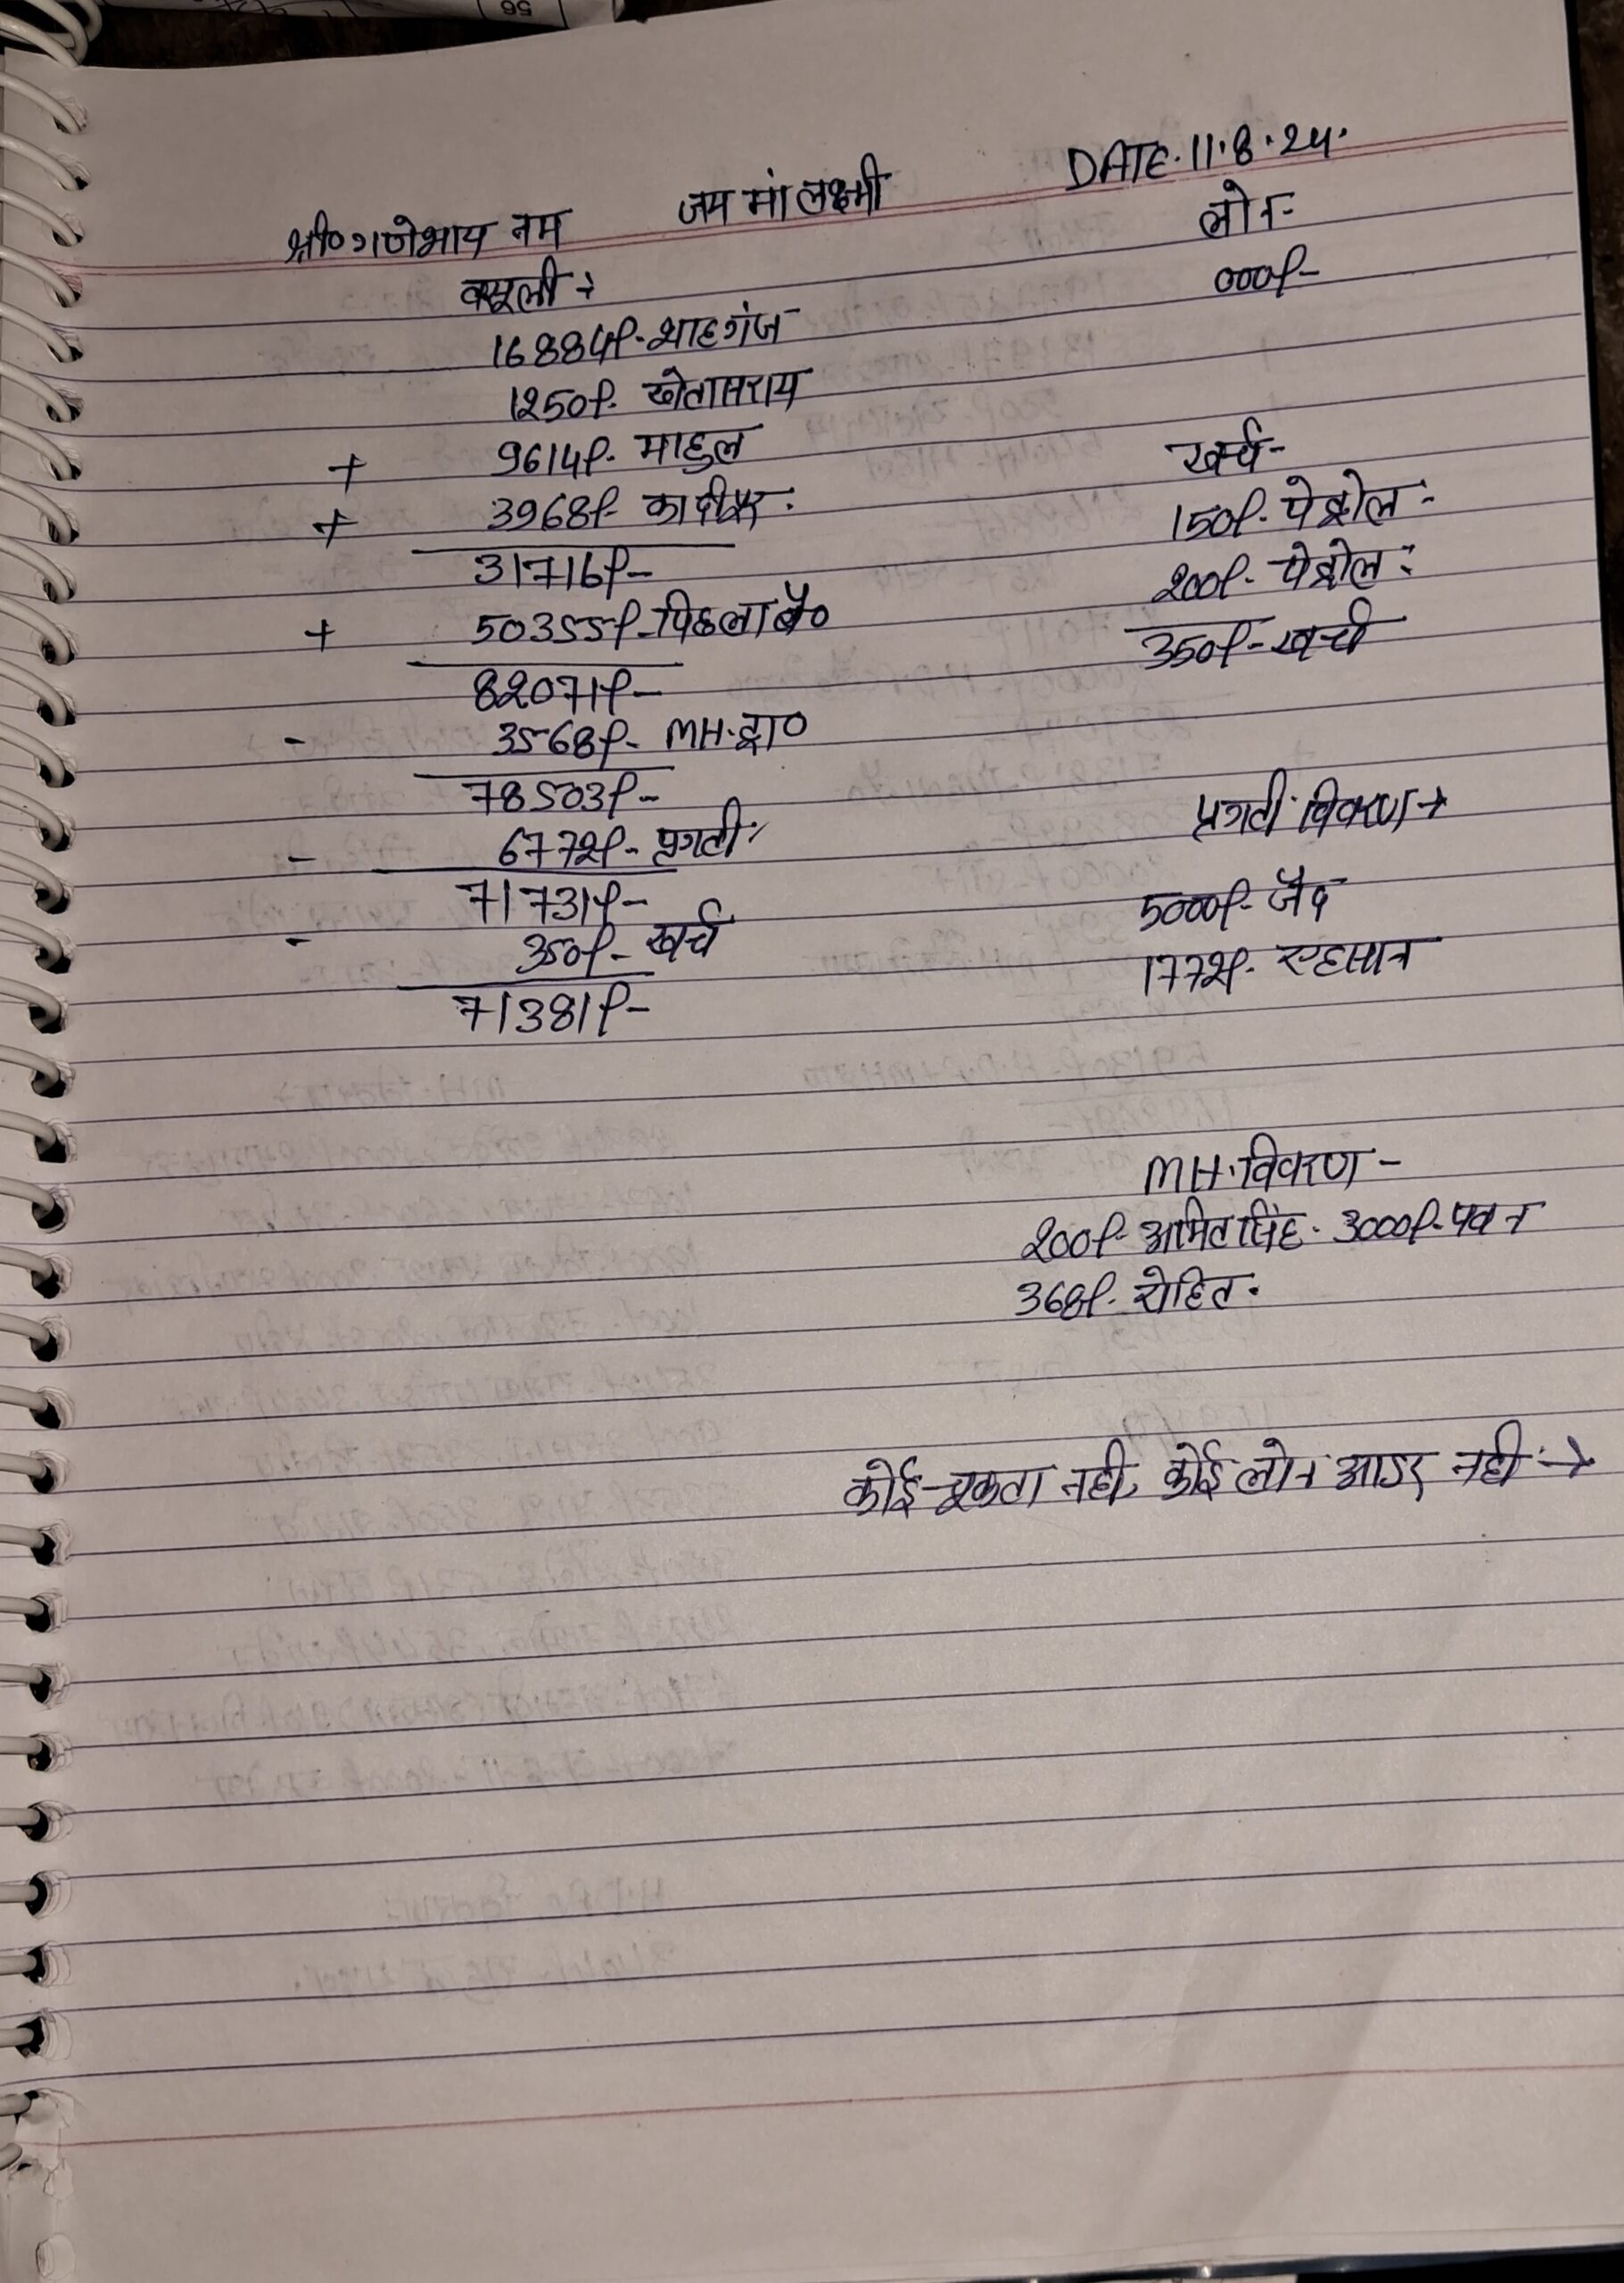 श्री० गणेशाय नम जय मां लक्ष्मी DATE. 11.8.24.
वसूली →
16884/- शाहगंज
1250/- खेतासराय
+ 9614/- माहुल
+ 3968/- कादीपुर.
31716/-
+ 50355/- पिछला बै०
82071/-
- 3568/- MH. द्वा०
78503/-
- 6772/- प्रगती
71731/-
- 350/- खर्च
71381/-
लोन-
000/-
खर्च-
150/- पेट्रोल-
200/- पेट्रोल-
350/- खर्चा
प्रगती विवरण →
5000/- जैद
1772/- एहसान
MH. विवरण -
200/- अमित सिंह. 3000/- पवन
368/- रोहित.
कोई चूकता नही, कोई लोन आडर नही →